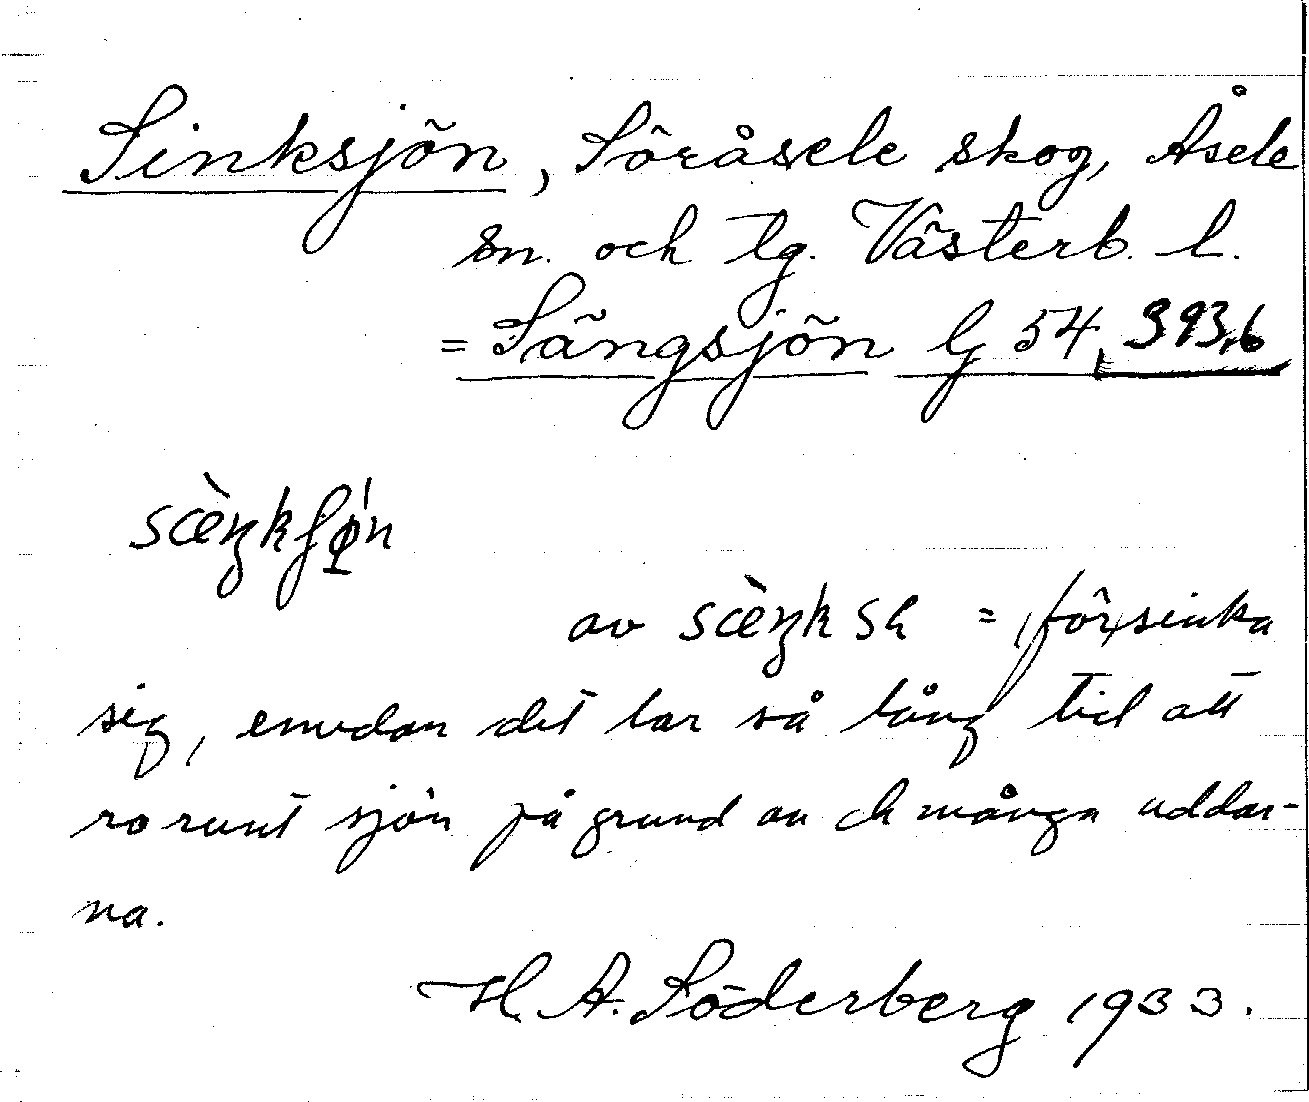 Sinksjön, Söråsele skog, Åsele
sn. och lg. Västerb. l.
= Sängsjön G 54, 393,6
av = (för)sinka
sig, emedan det tar så lång tid att
ro runt sjön på grund av de många uddar-
na.
H. A. Söderberg 1933.